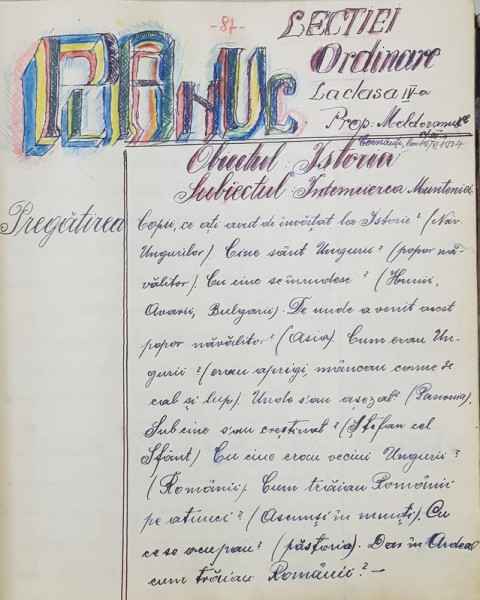 -87-
PLANUL
LECȚIEI
Ordinare
La clasa IV-a
Prop: Moldovanu
Obiectul: Istoria
Subiectul: Întemeierea Munteniei
Pregătirea
Copii, ce ați avut de învățat la Istorie? (Năv.
Ungurilor). Cine sânt Ungurii? (popor nă-
vălitor). Cu cine se înrudesc? (Hunii,
Avarii, Bulgarii). De unde a venit acest
popor năvălitor? (Asia). Cum erau Un-
gurii? (erau aprigi, mâncau carne de
cal și lup). Unde s'au așezat? (Panonia).
Sub cine s'au creștinat? (Ștefan cel
Sfânt) Cu cine erau vecini Ungurii?
(Românii). Cum trăiau Românii
pe atunci? (Ascunși în munți). Cu
ce se ocupau? (păstoria). Dar în Ardeal
cum trăiau Românii? -